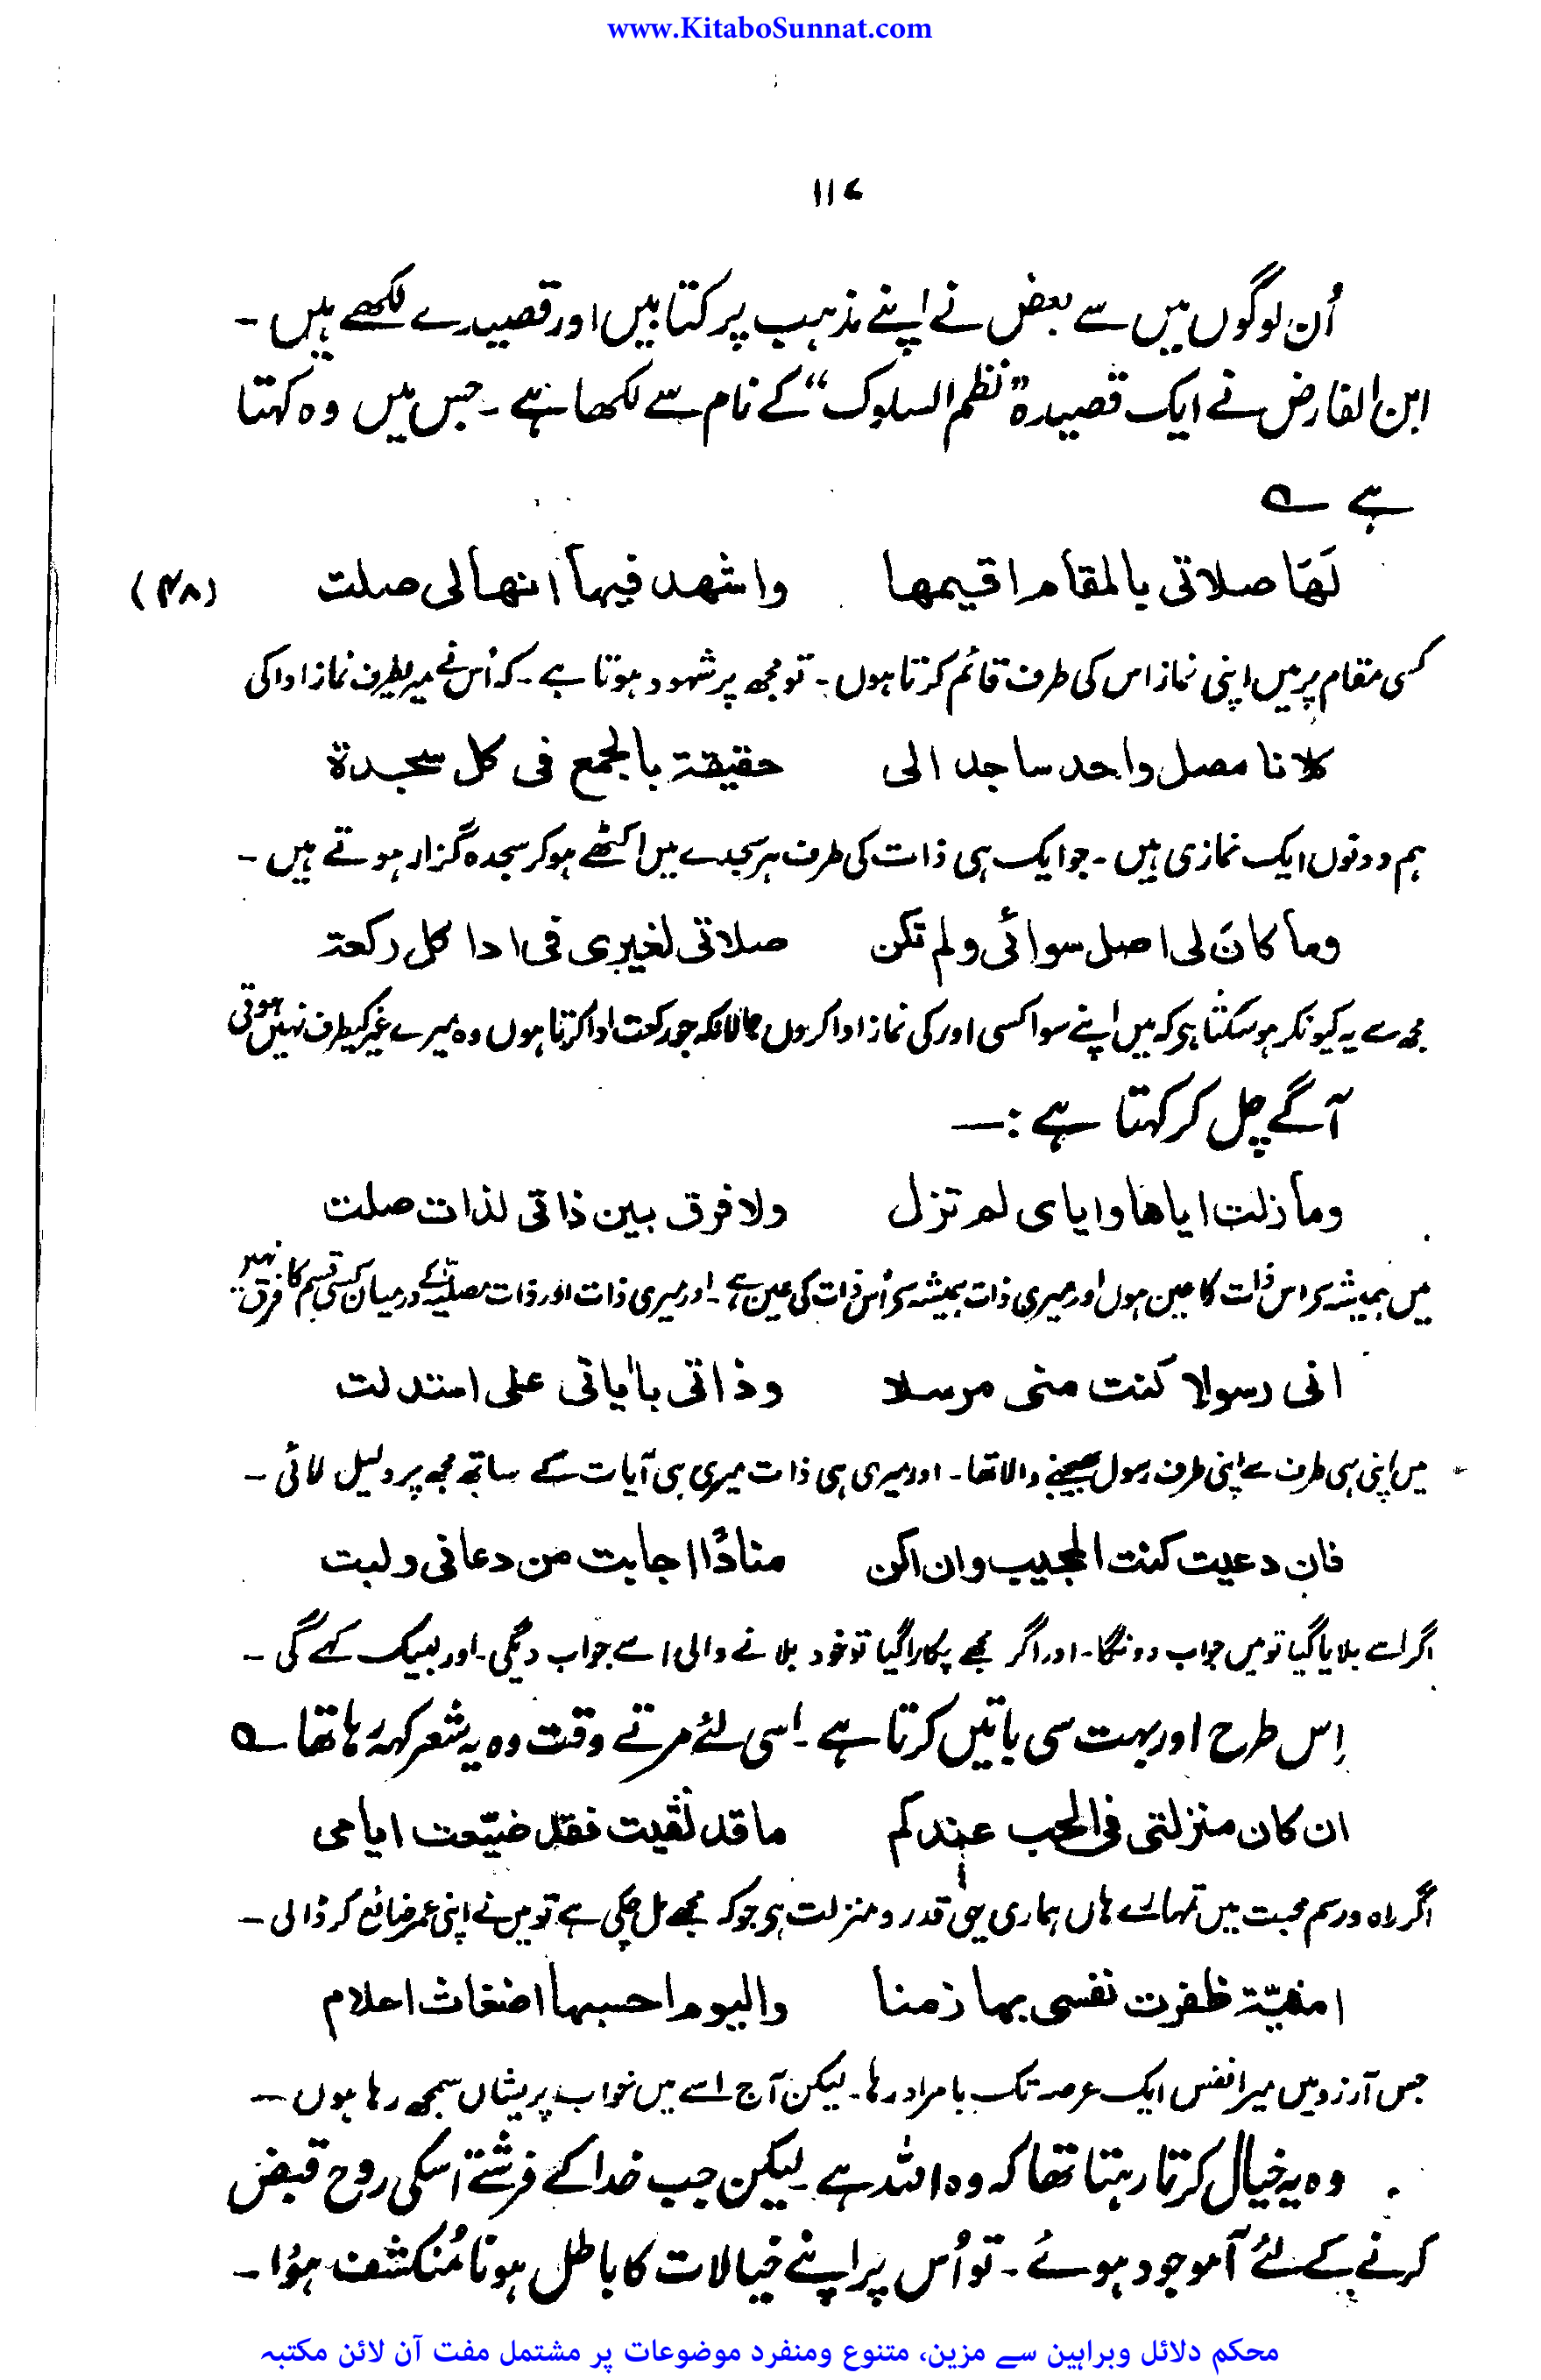 www.KitaboSunnat.com
۱۱۷
اُن لوگوں میں سے بعض نے اپنے مذہب پر کتابیں اور قصیدے لکھے ہیں ۔
ابن الفارض نے ایک قصیدہ ”نظم السلوک“ کے نام سے لکھا ہے ۔ جس میں وہ کہتا
ہے ؎
لَھَا صلاتی بالمقام اقیمھا واشھد فیھا انھا لی صلت (۴۸)
کسی مقام پر میں اپنی نماز اس کی طرف قائم کرتا ہوں ۔ تو مجھ پر شہود ہوتا ہے ۔ کہ اُس نے میریطرف نماز ادا کی
کلانا مصل واحد ساجد الی حقیقۃ بالجمع فی کل سجدۃ
ہم دونوں ایک نمازی ہیں ۔ جو ایک ہی ذات کی طرف ہر سجدے میں اکٹھے ہو کر سجدہ گزار ہوتے ہیں ۔
وما کانَ لی اصل سوائی ولم تکن صلاتی لغیری فی ادا کل رکعۃ
مجھ سے یہ کیونکر ہو سکتا ہے کہ میں اپنے سوا کسی اور کی نماز ادا کروں حالانکہ جو رکعت ادا کرتا ہوں وہ میرے غیر کیطرف نہیں ہوتی
آگے چل کر کہتا ہے :۔
وما زلت ایاھا وایای لم تزل ولا فرق بین ذاتی لذات صلت
میں ہمیشہ سے اس ذات کا عین ہوں اور میری ذات ہمیشہ سے اُس ذات کی عین ہے ۔ اور میری ذات اور ذات مصلیہ کے درمیان کسی قسم کا فرق نہیں
انی رسولا کنت منی مرسلا وذاتی بایاتی علی استدلت
میں اپنی ہی طرف سے اپنی طرف رسول بھیجنے والا تھا ۔ اور میری ہی ذات میری ہی آیات کے ساتھ مجھ پر دلیل لائی ۔
فان دعیت کنت المجیب وان اکن منادًا اجابت من دعانی ولبت
اگر اسے بلایا گیا تو میں جواب دونگا ۔ اور اگر مجھے پکارا گیا تو خود بلانے والی اسے جواب دیگی ۔ اور لبیک کہے گی ۔
اِس طرح اور بہت سی باتیں کرتا ہے ۔ اسی لئے مرتے وقت وہ یہ شعر کہہ رہا تھا ؎
ان کان منزلتی فی الحب عندکم ما قد لقیت فقد ضیّعت ایامی
اگر راہ و رسم محبت میں تمہارے ہاں ہماری یہی قدر و منزلت ہے جو کہ مجھے مل چکی ہے تو میں نے اپنی عمر ضائع کر ڈالی ۔
امنیّۃ ظفرت نفسی بھا زمنا والیوم احسبھا اضغاث احلام
جس آرزو میں میرا نفس ایک عرصہ تک بامراد رہا ۔ لیکن آج اسے میں خواب پریشاں سمجھ رہا ہوں ۔
وہ یہ خیال کرتا رہتا تھا کہ وہ اللہ ہے ۔ لیکن جب خدا کے فرشتے اسکی روح قبض
کرنے کے لئے آموجود ہوئے ۔ تو اُس پر اپنے خیالات کا باطل ہونا مُنکشف ہؤا ۔
محکم دلائل وبراہین سے مزین، متنوع ومنفرد موضوعات پر مشتمل مفت آن لائن مکتبہ